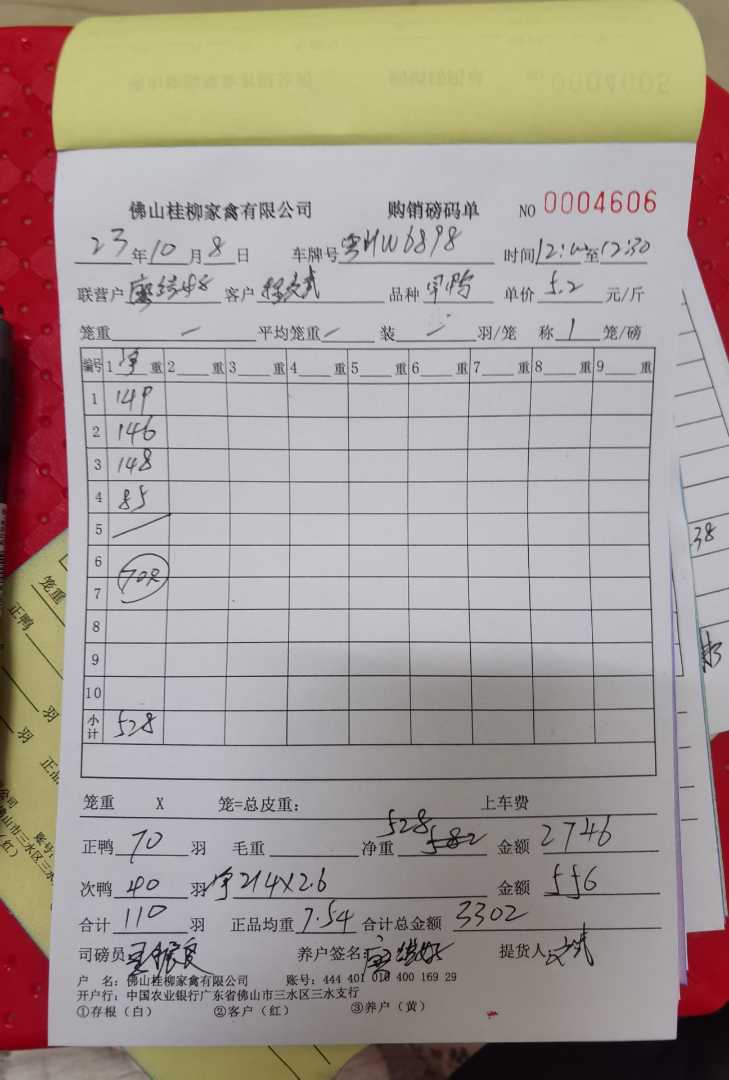 佛山桂柳家禽有限公司 购销磅码单 NO 0004606
23年10月8日 车牌号 粤HW6898 时间12:00至12:30
联营户 客户 品种 单价 5.2 元/斤
笼重 — 平均笼重 — 装 — 羽/笼 称 1 笼/磅
编号 1 净 重 2 重 3 重 4 重 5 重 6 重 7 重 8 重 9 重
1 149
2 146
3 148
4 85
5
6 70只
7
8
9
10
小计 528
笼重 X 笼=总皮重: 上车费
正鸭 70 羽 毛重 净重 528 582 金额 2746
次鸭 40 羽 净 214X2.6 金额 556
合计 110 羽 正品均重 7.54 合计总金额 3302
司磅员 养户签名: 提货人
户 名: 佛山桂柳家禽有限公司 账号: 444 401 010 400 169 29
开户行: 中国农业银行广东省佛山市三水区三水支行
①存根(白) ②客户(红) ③养户(黄)
0004605
38
笼重
正鸭
羽
羽